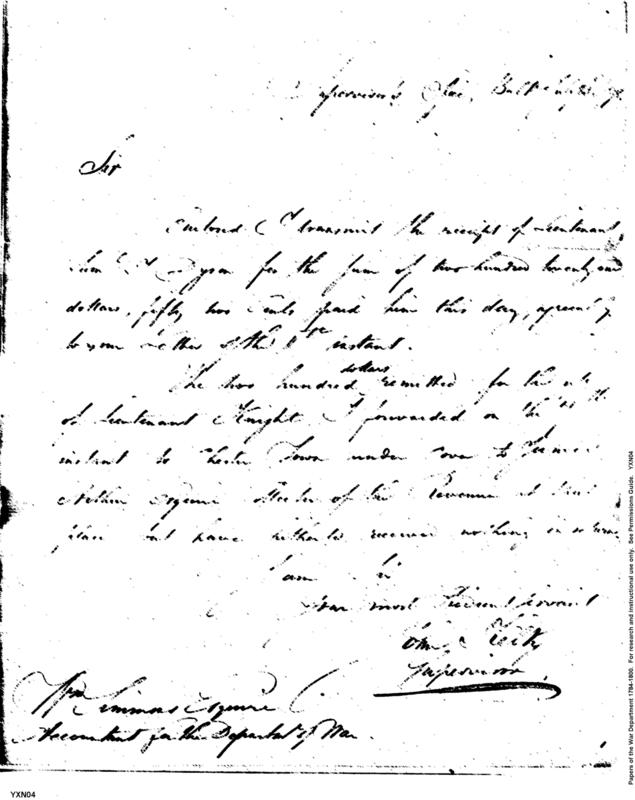 Supervisor's Office, Balt
Sir
Enclosed I transmit the receipt of Lieutenant
Dyson for the sum of two hundred twenty one
dollars, fifty two cents paid him this day, agreeably
to your letter of the instant.
The two hundred dollars remitted for the use
of Lieutenant Knight I forwarded on the
instant to Chester Town under cover to
Esquire of the Revenue at that
place but have hitherto received nothing in return
I am Sir
Your most Servant
Supervisor.
Wm Simmons Esquire
Accountant for the Departmt of War.
Papers of the War Department 1784-1800. For research and instructional use only. See Permissions Guide. YXN04
YXN04